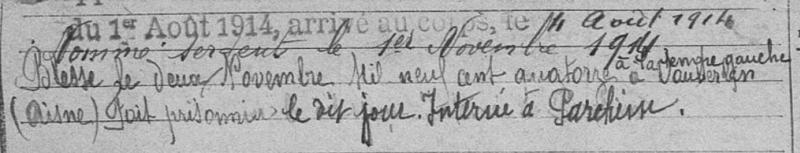 du 1er Août 1914, arrivé au corps, le 4 Août 1914
Nommé sergent le 1er Novembre 1914
Blessé le deux Novembre Mil neuf cent quatorze à la tempe gauche à Vauberon
(Aisne) Fait prisonnier le dit jour. Interné à Parchim.